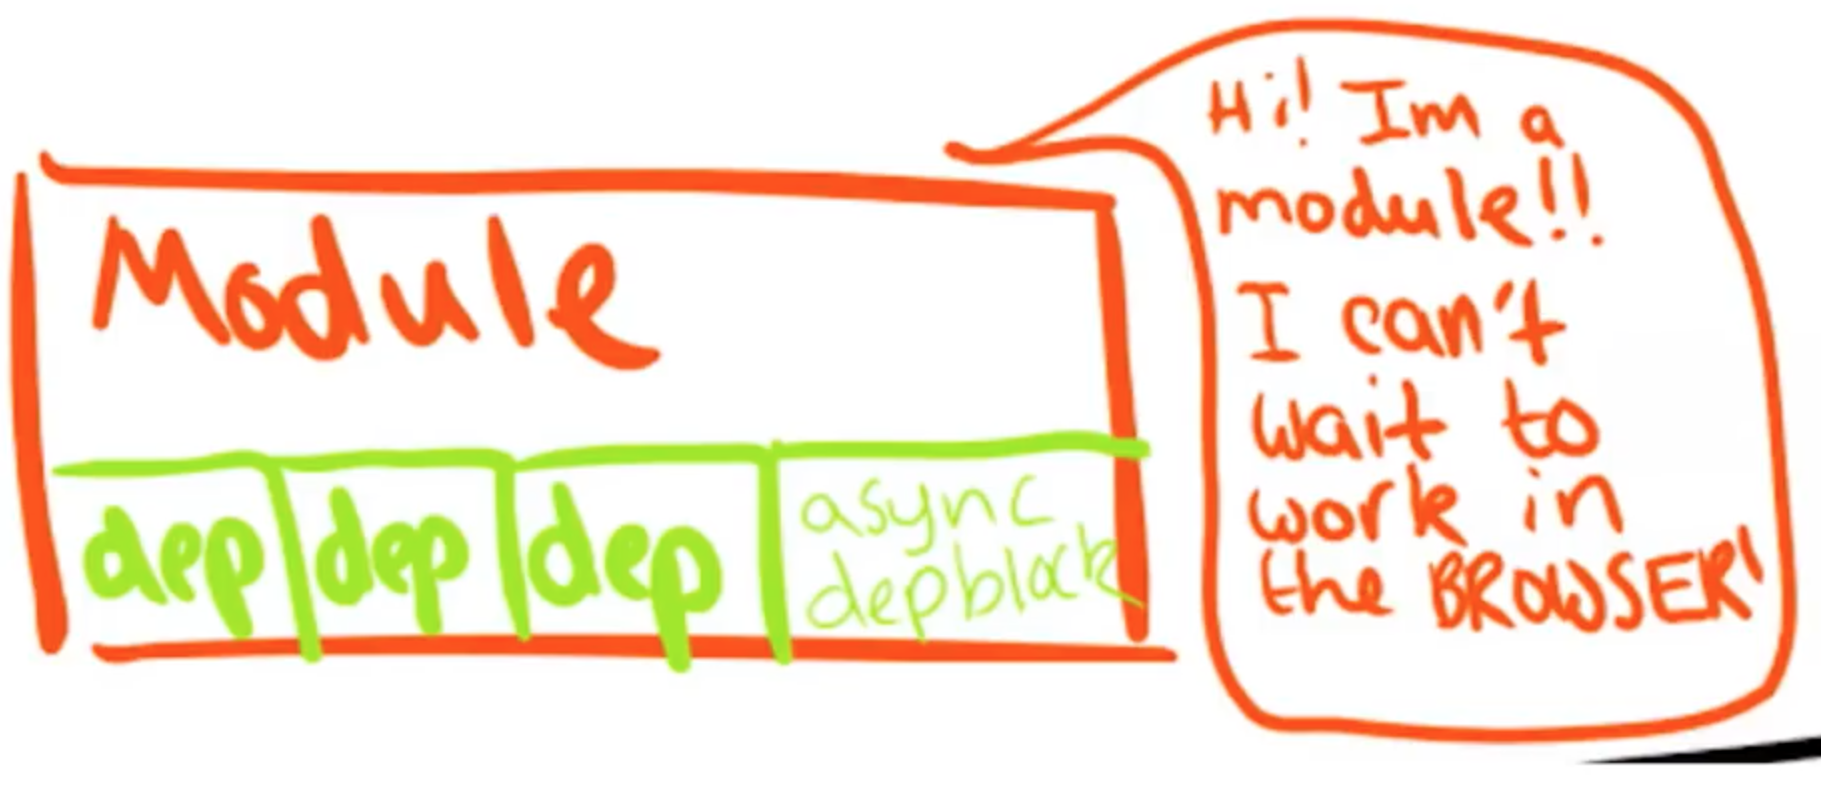 Module
dep dep dep async
depblock
Hi! Im a
module!!
I can't
wait to
work in
the BROWSER!